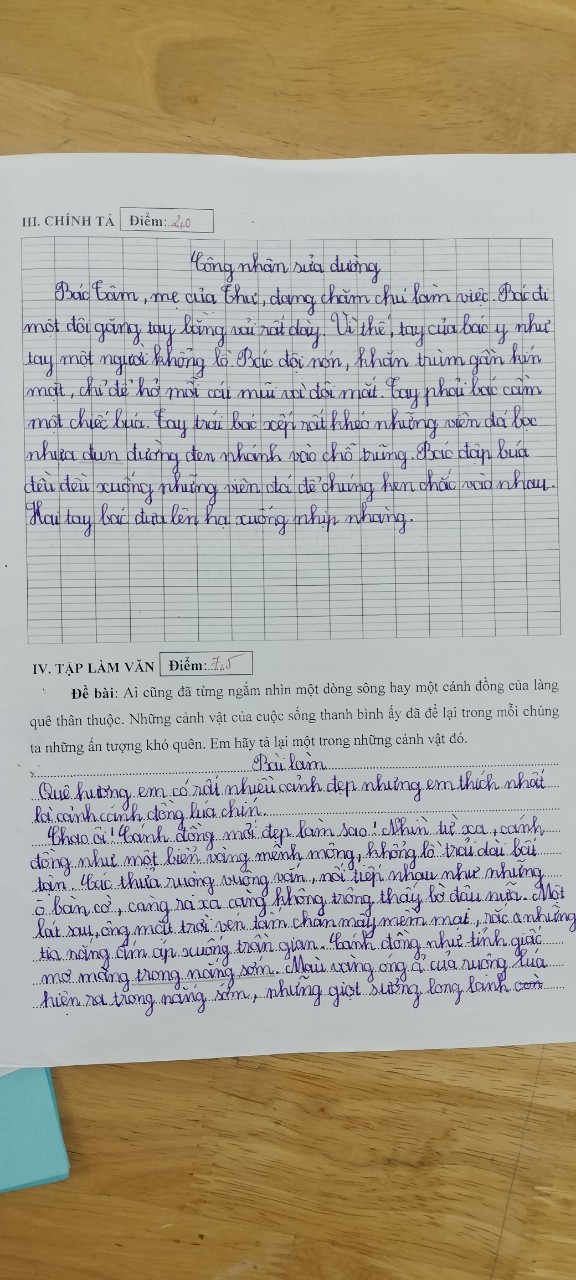 III. CHÍNH TẢ Điểm:..2,0
Công nhân sửa đường
Bác Tâm, mẹ của Thư, đang chăm chú làm việc. Bác đi
một đôi găng tay bằng vải rất dày. Vì thế, tay của bác y như
tay một người khổng lồ. Bác đội nón, khăn trùm gần kín
mặt, chỉ để hở mỗi cái mũi và đôi mắt. Tay phải bác cầm
một chiếc búa. Tay trái bác xếp rất khéo những viên đá bọc
nhựa đun đường đen nhánh vào chỗ trũng. Bác đập búa
đều đều xuống những viên đá để chúng ken chắc vào nhau.
Hai tay bác đưa lên hạ xuống nhịp nhàng.
IV. TẬP LÀM VĂN Điểm:..7,5
Đề bài: Ai cũng đã từng ngắm nhìn một dòng sông hay một cánh đồng của làng
quê thân thuộc. Những cảnh vật của cuộc sống thanh bình ấy đã để lại trong mỗi chúng
ta những ấn tượng khó quên. Em hãy tả lại một trong những cảnh vật đó.
Bài làm
Quê hương em có rất nhiều cảnh đẹp nhưng em thích nhất
là cảnh cánh đồng lúa chín.
Chao ôi! Cánh đồng mới đẹp làm sao! Nhìn từ xa, cánh
đồng như một biển vàng mênh mông, khổng lồ trải dài bất
tận. Các thửa ruộng vuông vắn, nối tiếp nhau như những
ô bàn cờ, càng ra xa càng không trông thấy bờ đâu nữa. Một
lát sau, ông mặt trời vén tấm chăn mây mềm mại, rắc những
tia nắng ấm áp xuống trần gian. Cánh đồng như tỉnh giấc
mơ màng trong nắng sớm. Màu vàng óng ả của ruộng lúa
hiện ra trong nắng sớm, những giọt sương long lanh còn